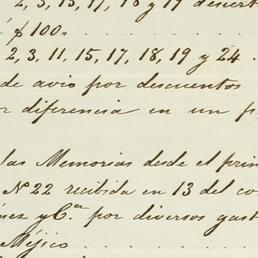 2, 3, 15, 17, 18 y 19 descert
á $100.
2, 3, 11, 15, 17, 18, 19 y 24.
de avio por descuentos
diferencia en un
las Memorias desde el prin
Nº 22 recibida en 13 del co
y Cª por diversos gast
Méjico